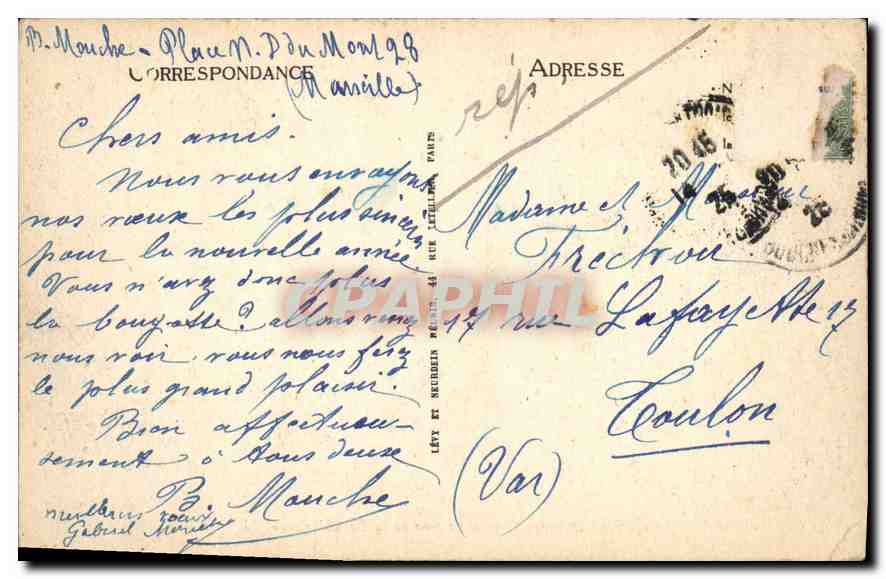 B. Mouche - Place N. D du Mont 28
(Marseille)
CORRESPONDANCE
ADRESSE
rép.
Chers amis.
Nous vous envoyons
nos vœux les plus sincères
pour la nouvelle année.
Vous n'avez donc plus
la bougotte? allons venez
nous voir vous nous ferez
le plus grand plaisir.
Bien affectueu-
sement à tous deux
B. Mouche
meilleurs vœux
Gabriel
LÉVY ET NEURDEIN RÉUNIS, 44 RUE LETELLIER, PARIS
Madame et Monsieur
17 rue Lafayette 17
Toulon
(Var)
20 45
CPAPHIL